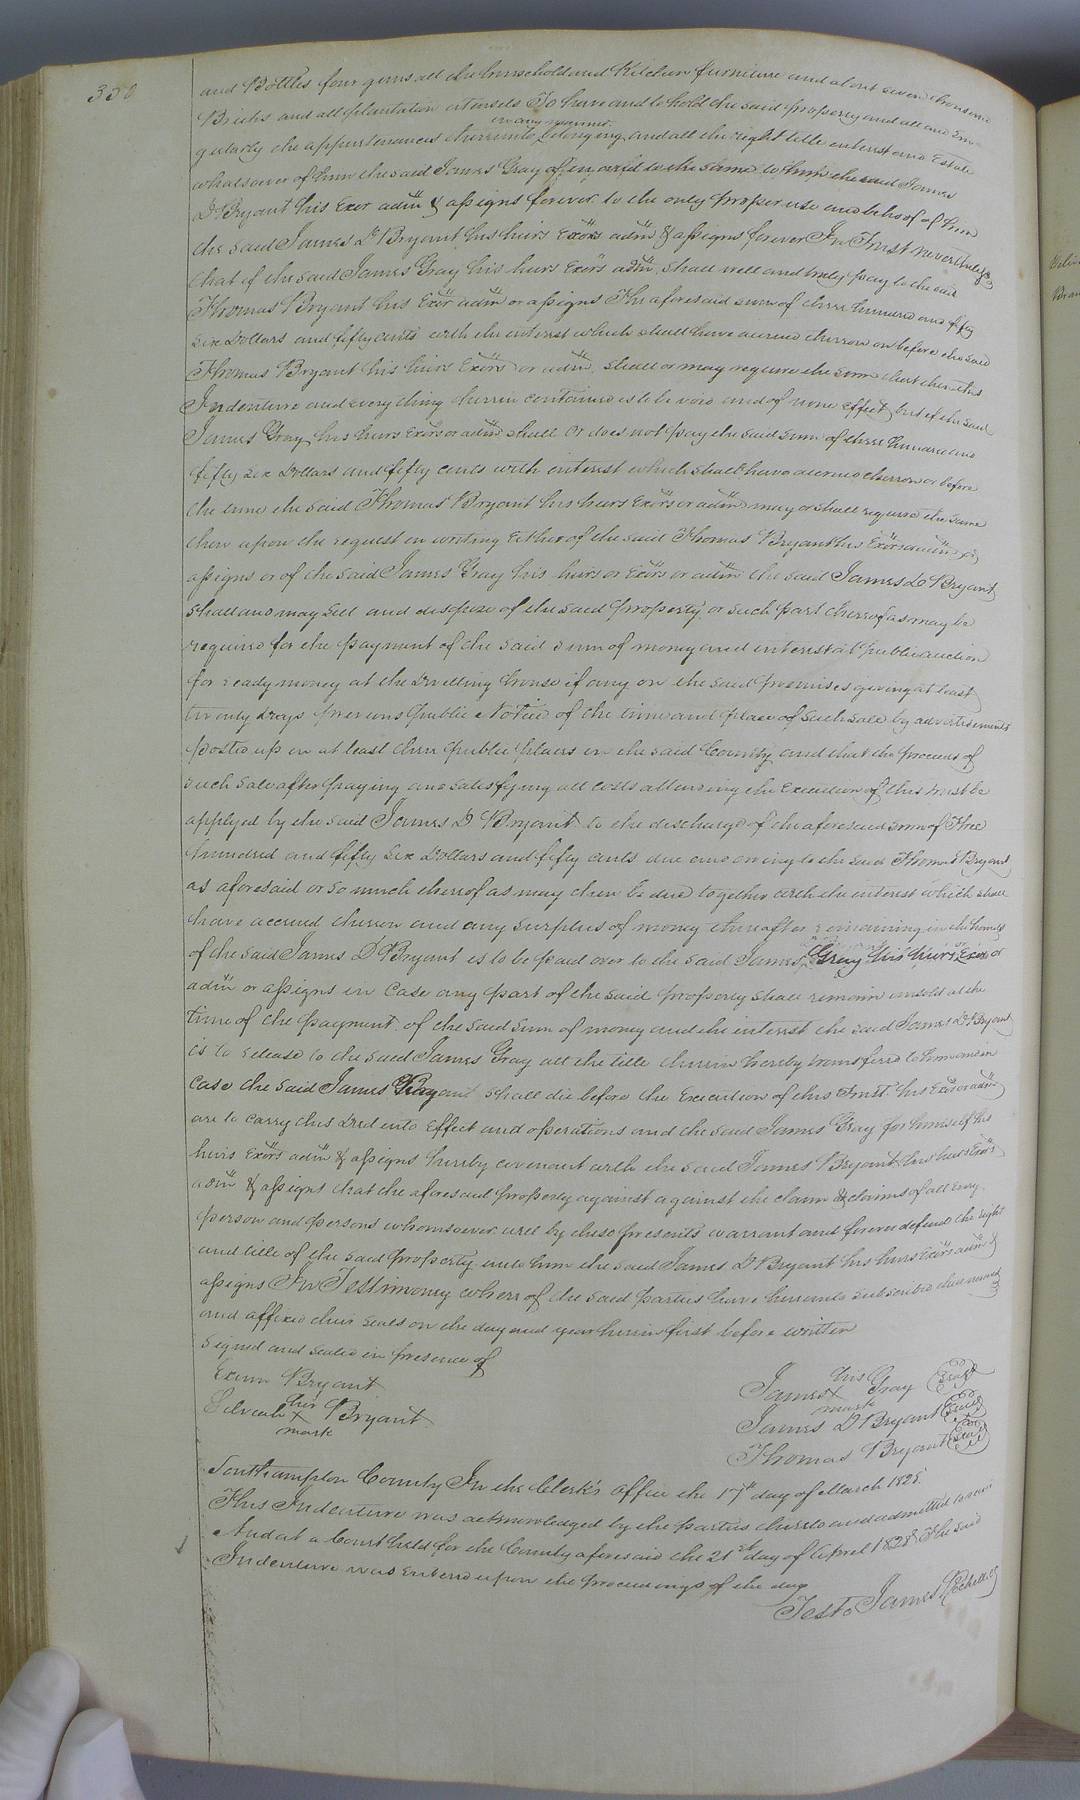 350
and Bottles four guns all the household and Kitchen furniture and about seven thousand
Bricks and all plantation utensels To have and to hold the said property and all and Sin-
in any manner
gularly the appurtenances thereunto belonging and all the right title interest and Estate
whatsoever of him the said James Gray of in and to the same to him the said James
D Bryant his Exor adm & assigns forever to the only proper use and behoof of him
the said James D Bryant his heirs Exors adm & assigns forever In Trust nevertheless
that if the said James Gray his heirs Exors adm shall well and truly pay to the said
Thomas Bryant his Exor adm or assigns The aforesaid sum of three hundred and fifty
six Dollars and fifty cents with the interest which shall have accrued thereon on before the said
Thomas Bryant his heirs Exors or adm. shall or may require the sum that then this
Indenture and every thing therein contained is to be void and of none effect but if the said
James Gray his heirs Exors or adm shall or does not pay the said sum of three hundred and
fifty six Dollars and fifty cents with interest which shall have accrued thereon or before
the time the said Thomas Bryant his heirs Exors or adm may or shall require the same
then upon the request in writing Either of the said Thomas Bryant his Exors adm or
assigns or of the said James Gray his heirs or Exors or adm the said James D Bryant
shall and may sell and dispose of the said property or such part thereof as may be
required for the payment of the said sum of money and interest at public auction
for ready money at the dwelling house if any on the said premises giving at least
twenty days previous public Notice of the time and place of such sale by advertisements
posted up in at least three public places in the said County and that the proceeds of
such sale after paying and satisfying all costs attending the Execution of this trust be
applyed by the said James D Bryant to the discharge of the aforesaid sum of Three
hundred and fifty six Dollars and fifty cents due and owing to the said Thomas Bryant
as aforesaid or so much thereof as may then be due together with the interest which shall
have accrued thereon and any surplus of money thereafter remaining in the hands
of the said James D Bryant is to be paid over to the said James Gray his heirs Exor or
adm or assigns in Case any part of the said property shall remain unsold at the
time of the payment of the said sum of money and the interest the said James D Bryant
is to release to the said James Gray all the title therein hereby transferred to him and in
case the said James Bryant shall die before the Execution of this Trust his Exor or adm
are to carry this deed into Effect and operations and the said James Gray for himself his
heirs Exors adm & assigns hereby covenant with the said James Bryant his heirs Exors
adm & assigns that the aforesaid property against against the claim & claims of all every
person and persons whomsoever will by these presents warrant and forever defend the right
and title of the said property unto him the said James D Bryant his heirs Exors adm &
assigns In Testimony whereof the said parties have hereunto subscribed their names
and affixed their seals on the day and year herein first before written
Signed and sealed in presence of
Exum Bryant
his
James X Gray Seal
mark
his
X Bryant
mark
James D Bryant Seal
Thomas Bryant Seal
Southampton County In the Clerk's office the 17th day of March 1828
This Indenture was acknowledged by the parties thereto and admitted to record
And at a Court held for the County aforesaid the 21st day of April 1828 The said
Indenture was Entered upon the proceedings of the day
Teste James Rochelle